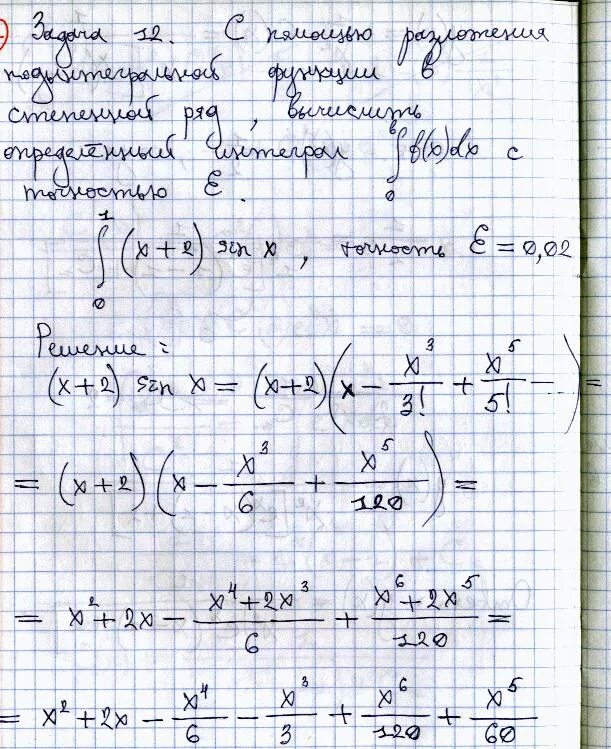 Задача 12. С помощью разложения
подынтегральной функции в
степенной ряд, вычислить
определённый интеграл ∫₀ᵇ f(x)dx с
точностью ε.
∫₀¹ (x+2) sin x, точность ε = 0,02
Решение:
(x+2) sin x = (x+2)(x - x³/3! + x⁵/5! - ) =
= (x+2)(x - x³/6 + x⁵/120) =
= x² + 2x - (x⁴+2x³)/6 + (x⁶+2x⁵)/120 =
= x² + 2x - x⁴/6 - x³/3 + x⁶/120 + x⁵/60